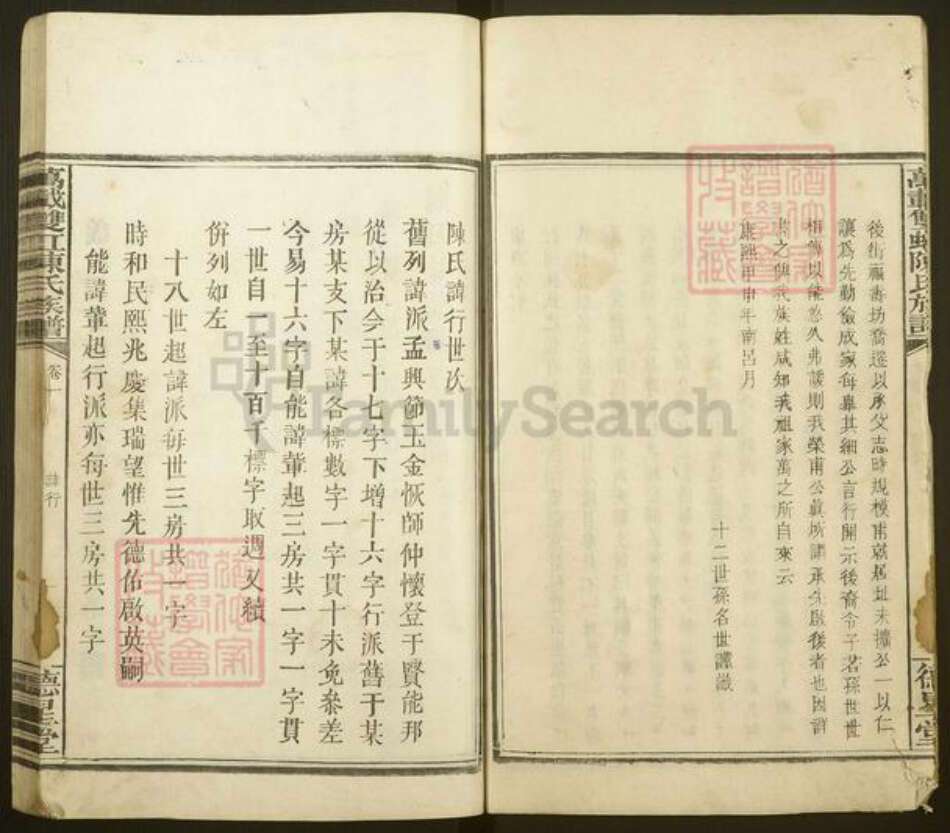 後街福壽坊喬遷以承父志時規模甫就居址未擴公一以仁
讓爲先勤儉成家每舉其細公言行開示後裔令子若孫世世
相傳以能悠久弗諼則我榮甫公眞城諸承先啟後者也因
之與我族姓咸知我祖家萬之所自來云
康熙甲申年南呂月
十二世孫名世謹識
陳氏諱行世次
舊列諱派孟興節玉金恢師仲懷登于賢能邦
從以治今于十七字下增十六字行派舊于某
房某支下某諱各標數字一字貫十未免參差
今易十六字自能諱輩起三房共一字一字貫
一世自一至十百千標字取週又續
併列如左
十八世起諱派每世三房共一字
時和民熙兆慶集瑞望惟先德佑啟英嗣
能諱輩起行派亦每世三房共一字
萬載雙虹陳氏族譜
卷一
諱行
德星堂
FamilySearch